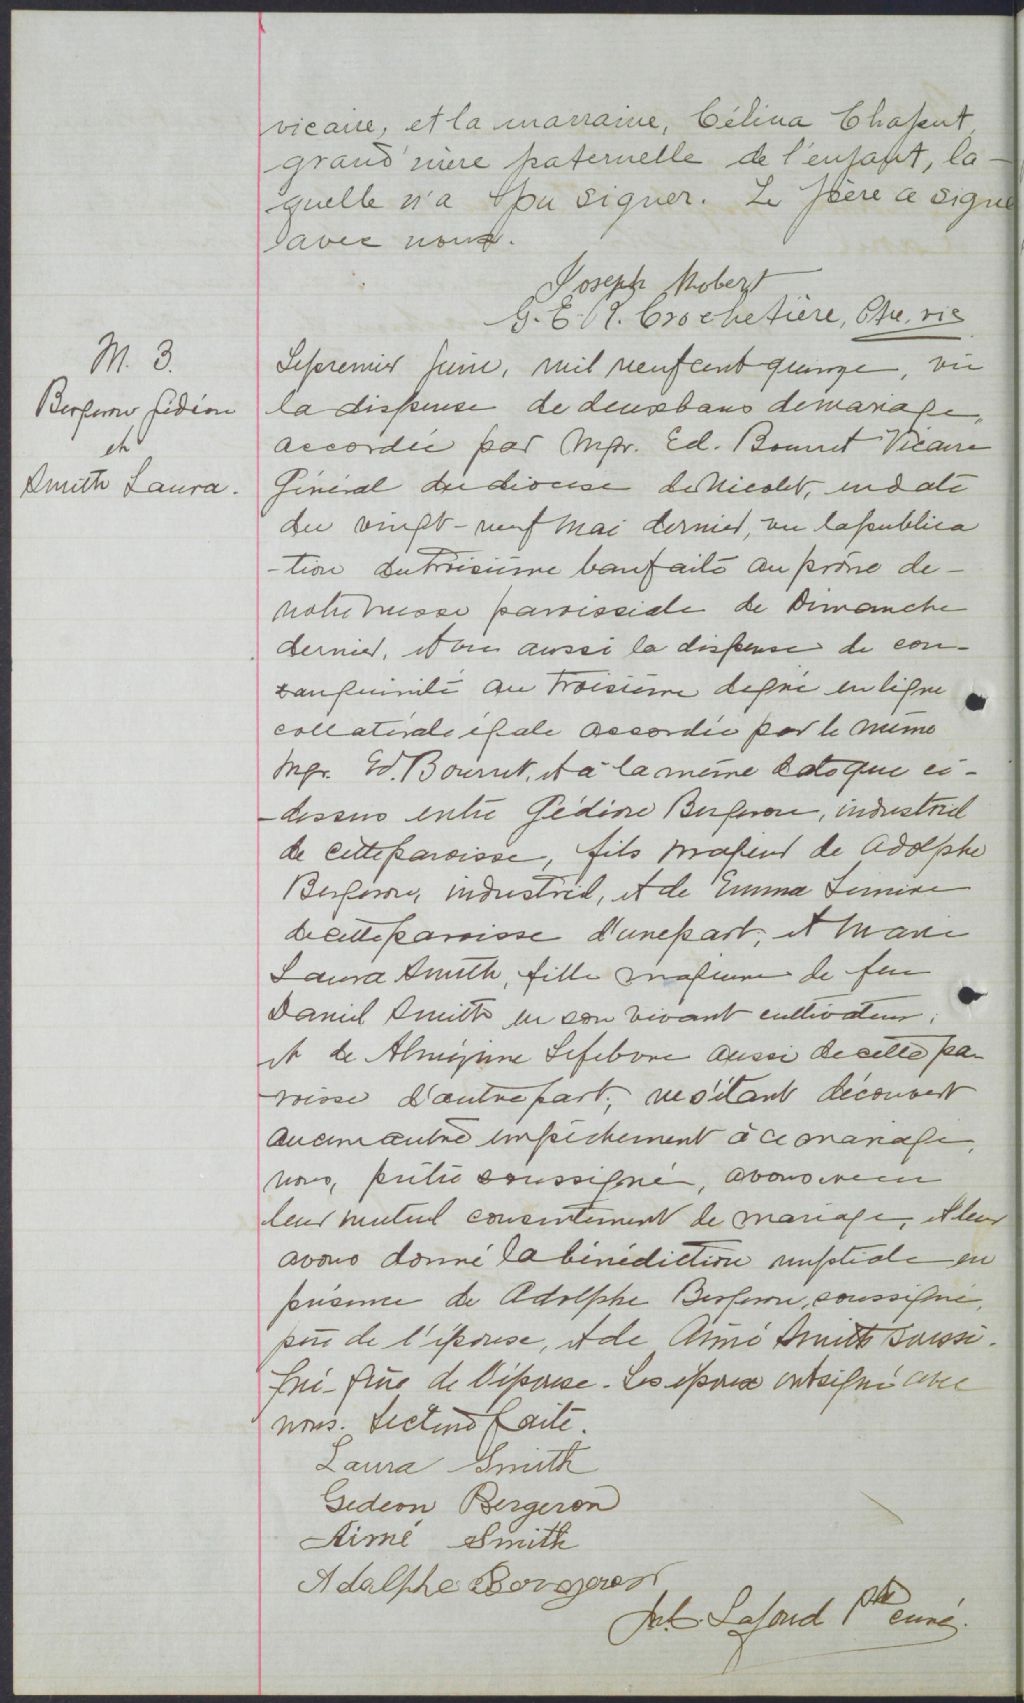 vicaire, et la marraine, Célina Chaput,
grand'mère paternelle de l'enfant, la-
quelle n'a pu signer. Le père a signé
avec nous.
Joseph Robert
G. E. R. Crochetière, Ptre, vic
M. 3.
Bergeron Gédéon
et
Smith Laura.
Le premier Juin, mil neuf cent quinze, vu
la dispense de deux bans de mariage,
accordée par Mgr. Ed. Bourret Vicaire
Général du diocèse de Nicolet, en date
du vingt-neuf Mai dernier, vu la publica
-tion du troisième ban faite au prône de-
notre messe paroissiale de Dimanche
dernier, et vu aussi la dispense de con-
sanguinité au troisième degré en ligne
collatérale égale accordée par le même
Mgr. Ed. Bourret, et à la même date que ci-
-dessus entre Gédéon Bergeron, industriel
de cette paroisse, fils majeur de Adolphe
Bergeron, industriel, et de Emma Lemire
de cette paroisse d'une part; et Marie
Laura Smith, fille majeure de feu
Daniel Smith en son vivant cultivateur,
et de Almézime Lefebvre aussi de cette pa-
roisse d'autre part; ne s'étant découvert
aucun autre empêchement à ce mariage,
nous, prêtre soussigné, avons reçu
leur mutuel consentement de mariage, et leur
avons donné la bénédiction nuptiale en
présence de Adolphe Bergeron, soussigné,
père de l'épouse, et de Aimé Smith soussi-
gné frère de l'épouse. Les époux ont signé avec
nous. Lecture faite.
Laura Smith
Gedeon Bergeron
Aimé Smith
Adolphe Bergeron
Lafond Ptre curé.